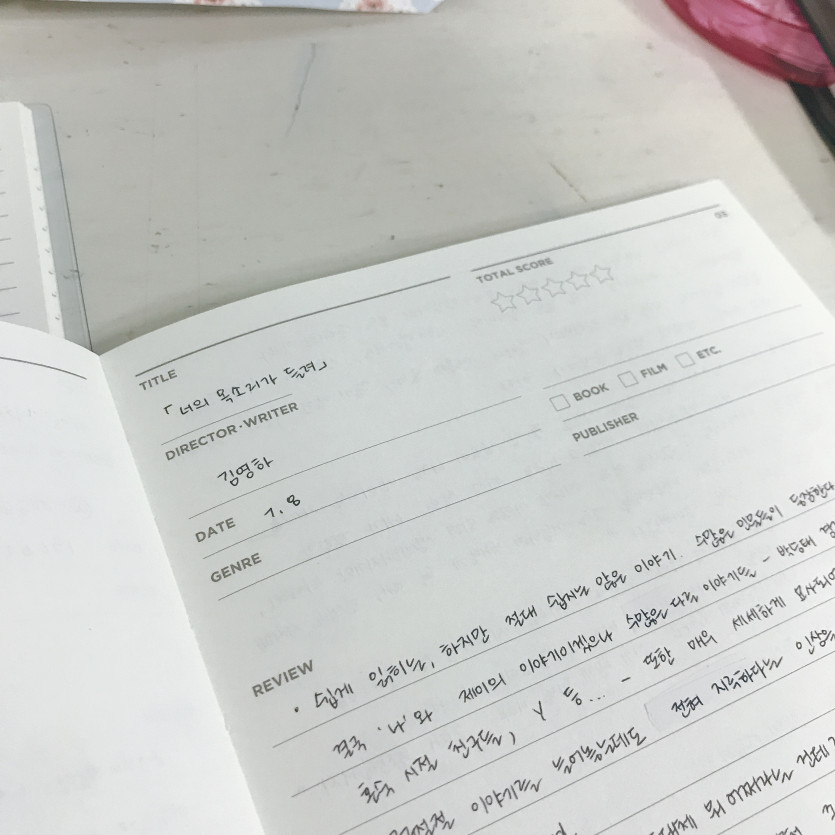 03
TOTAL SCORE
TITLE
「너의 목소리가 들려」
DIRECTOR·WRITER
BOOK FILM ETC.
김영하
PUBLISHER
DATE 7. 8
GENRE
REVIEW
• 쉽게 읽히는, 하지만 절대 쉽지는 않은 이야기. 수많은 인물들이 등장한다
결국 '나'와 제이의 이야기이겠으나 수많은 다른 이야기들 - 박승태
시절 친구들, Y 등... - 또한 매우 세세하게 묘사되어
이야기를 늘어놓는데도 전혀 지루하다는 인상을